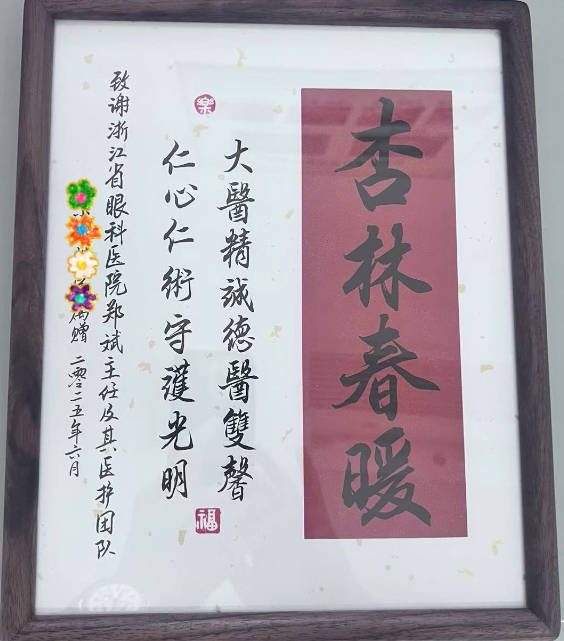 杏林春暖
大醫精誠德醫雙馨
仁心仁術守護光明
福
致谢浙江省眼科医院郑斌主任及其医护团队
赠 二零二五年六月